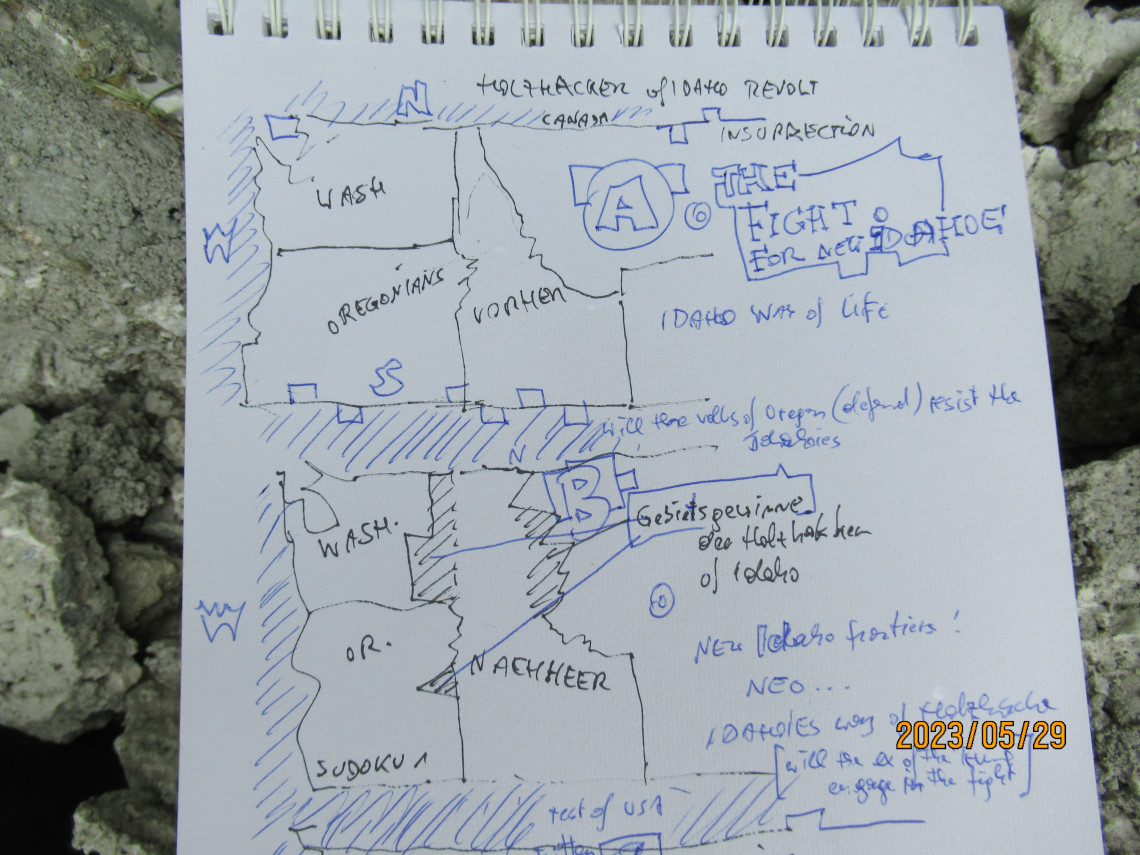 HOLZHACKER of IDAHO REVOLT
N
CANADA
INSURRECTION
WASH
A
THE
FIGHT
FOR NEW IDAHOE
W
O
OREGONIANS
VORHER
IDAHO WAY of LIFE
S
will the of Oregon (defend) resist the
Idahoies
N
B
WASH.
Gebietsgewinne
der Holzhakken
of Idaho
W
O
OR.
NAEHHEER
NEW Idaho frontiers!
NEO...
IDAHOIES way of
2023/05/29
[will the ex of the
engage in the fight]
SUDOKU 1
rest of USA